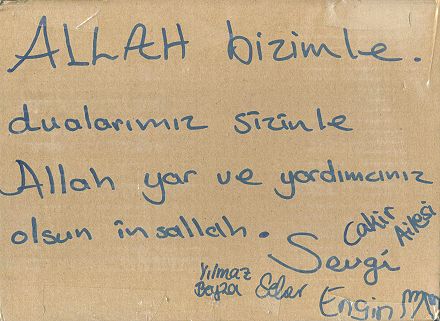 ALLAH bizimle.
dualarımız sizinle
Allah yar ve yardımcınız
olsun inşallah.
Cakir Ailesi
Sevgi
Yılmaz
Beyza
Engin